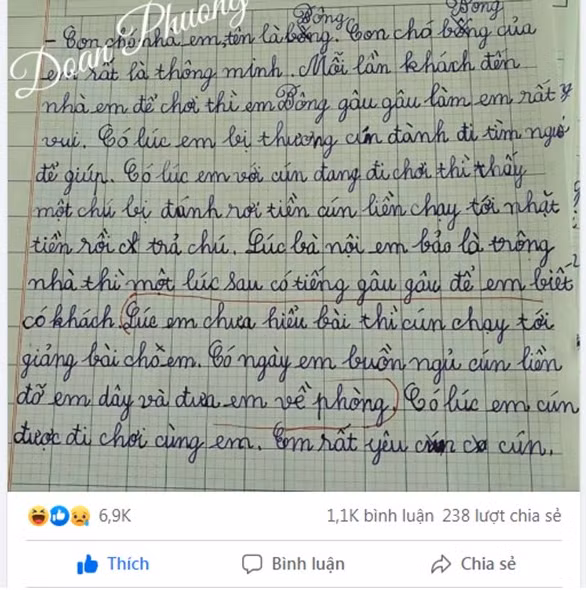 Bông Bông
- Con chó nhà em, tên là bông. Con chó bông của
Doan Phuong
em rất là thông minh. Mỗi lần khách đến
nhà em để chơi thì em Bông gâu gâu làm em rất
vui. Có lúc em bị thương cún đành đi tìm người
để giúp. Có lúc em với cún đang đi chơi thì thấy
một chú bị đánh rơi tiền cún liền chạy tới nhặt
tiền rồi trả chú. Lúc bà nội em bảo là trông
nhà thì một lúc sau có tiếng gâu gâu để em biết
có khách. Lúc em chưa hiểu bài thì cún chạy tới
giảng bài cho em. Có ngày em buồn ngủ cún liền
đỡ em dậy và đưa em về phòng. Có lúc em cún
được đi chơi cùng em. Em rất yêu cún.
6,9K 1,1K bình luận 238 lượt chia sẻ
Thích Bình luận Chia sẻ